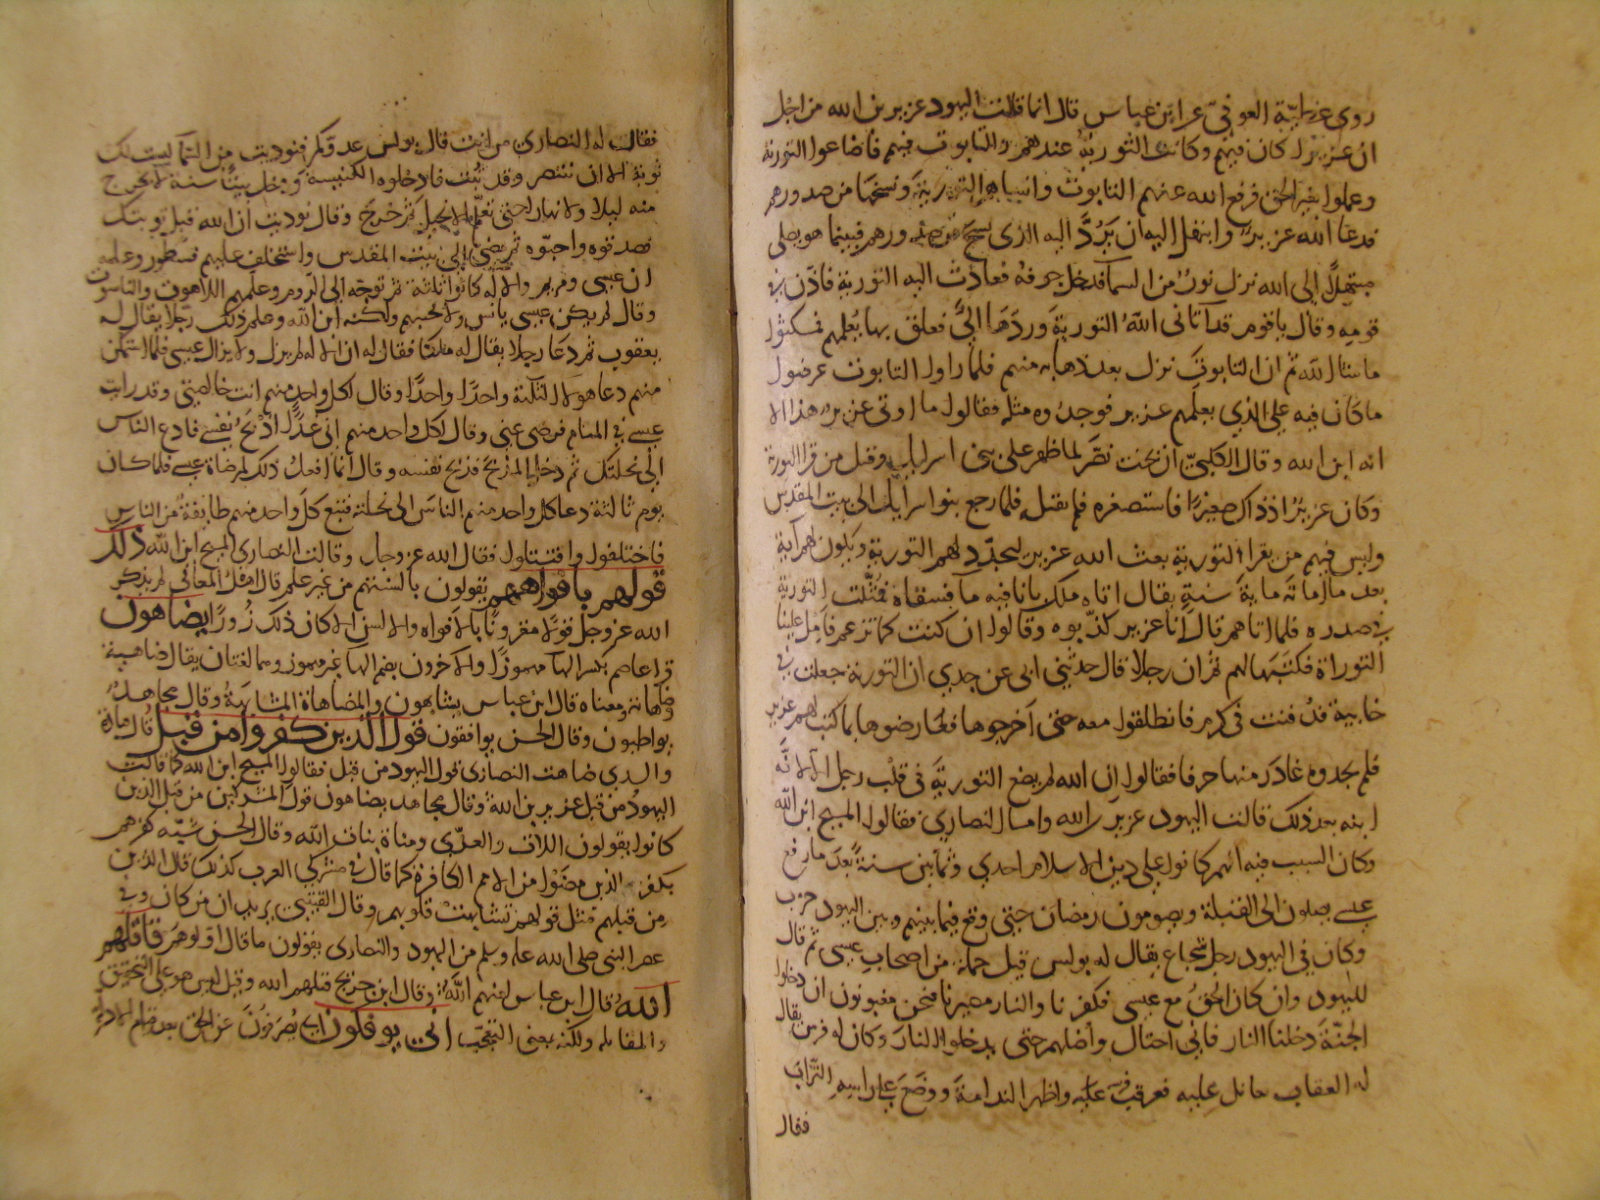 روى عطية العوفي عن ابن عباس قال انما قالت اليهود عزير بن الله من اجل
ان عزيرا كان فيهم وكانت التورية عندهم والتابوت فيهم فاضاعوا التورية
وعملوا بغير الحق فرفع الله عنهم التابوت وانساهم التورية ونسخها من صدورهم
فدعا الله عزير وابتهل اليه ان يرد اليه الذي نسخ من صدورهم فبينما هو يصلي
مبتهلا الى الله نزل نور من السما فدخل جوفه فعادت اليه التورية فاذن في
قومه وقال ياقوم قد آتاني الله التورية وردها الي فعلق بها يعلمهم فمكثوا
ما شا الله ثم ان التابوت نزل بعد ذهابه منهم فلما راوا التابوت عرضوا
ما كان فيه على الذي يعلمهم عزير فوجدوه مثله فقالوا ما اوتى عزير هذا الا
انه ابن الله وقال الكلبي ان بخت نصر لما ظهر على بني اسرايل وقتل من قرا التورية
وكان عزير اذ ذاك صغيرا فاستصغره فلم يقتله فلما رجع بنوا سرايل الى بيت المقدس
وليس فيهم من يقرا التورية بعث الله عزير ليجدد لهم التورية ويكون لهم آية
بعد ما اماته ماية سنة يقال اتاه ملك بانا فيه ما فسقاه فمثلت التورية
في صدره فلما اتاهم قال انا عزير كذبوه وقالوا ان كنت كما تزعم فامل علينا
التوراة فكتبها لهم ثم ان رجلا قال حدثني ابي عن جدي ان التورية جعلت في
خابية دفنت في كرم فانطلقوا معه حتى اخرجوها فعارضوها بما كتب لهم عزير
فلم يجدوه غادر منها حرفا فقالوا ان الله لم يضع التورية في قلب رجل الا لانه
ابنه بعد ذلك قالت اليهود عزير بن الله واما النصارى فقالوا المسيح ابن الله
وكان السبب فيه انهم كانوا على دين الاسلام احدى وثمانين سنة بعد ما رفع
عيسى يصلون الى القبلة ويصومون رمضان حتى وقع فيما بينهم وبين اليهود حرب
وكان في اليهود رجل شجاع يقال له بولس قتل جملة من اصحاب عيسى ثم قال
لليهود وان كان الحق مع عيسى فكفرنا والنار مصيرنا فنحن مغبونون ان دخلوا
الجنة ودخلنا النار فاني احتال واضلهم حتى يدخلوا النار وكان له فرس يقال
له العقاب يقاتل عليه فعرقب فرسه واظهر الندامة ووضع على راسه التراب
فقال
فقالت له النصارى من انت قال بولس عدوكم فنوديت من السما ليست لك
توبة الا ان تتنصر وقد تبت فادخلوه الكنيسة ودخل بيتا سنة لا يخرج
منه ليلا ولا نهارا حتى تعلم الانجيل ثم خرج وقال نوديت ان الله قبل توبتك
فصدقوه واحبوه ثم مضى الى بيت المقدس واستخلف عليهم نسطور وعلمه
ان عيسى ومريم والاله كانوا ثلثة ثم توجه الى الروم وعلمهم اللاهوت والناسوت
وقال لم يكن عيسى بانس ولا بجسم ولكنه ابن الله وعلم ذلك رجلا يقال له
يعقوب ثم دعا رجلا يقال له ملكا فقال له ان الاله لم يزل ولا يزال عيسى فلما استمكن
منهم دعا هولا الثلثة واحدا واحدا وقال لكل واحد منهم انت خالصتي وقد رايت
عيسى في المنام فرضي عني وقال لكل واحد منهم اني غدا اذبح نفسي فادع الناس
الى نحلتك ثم دخل المذبح فذبح نفسه وقال انما افعل ذلك لمرضاة عيسى فلما كان
يوم ثالثة دعا كل واحد منهم الناس الى نحلته فتبع كل واحد منهم طايفة من الناس
فاختلفوا واقتتلوا فقال الله عز وجل وقالت النصارى المسيح ابن الله ذلك
قولهم بافواههم يقولون بالسنتهم من غير علم قال اهل المعاني لم يذكر
الله عز وجل قولا مقرونا بالافواه والالسن الا كان ذلك زورا يضاهون
قرا عاصم بكسر الها مهموزا والاخرون بضم الها غير مهموز وهما لغتان يقال ضاهيته
وضاهاته ومعناه قال ابن عباس يشابهون والمضاهاة المشابهة وقال مجاهد
يواطيون وقال الحسن يوافقون قول الذين كفروا من قبل قال قتادة
والسدي ضاهت النصارى قول اليهود من قبل فقالوا المسيح ابن الله كما قالت
اليهود من قبل عزير بن الله وقال مجاهد يضاهون قول المشركين من قبل الذين
كانوا يقولون اللات والعزى ومناة بنات الله وقال الحسن شبه كفرهم
بكفر الذين مضوا من الامم الكافرة كما قال في مشركي العرب كذلك قال الذين
من قبلهم مثل قولهم تشابهت قلوبهم وقال القتيبي يريد ان من كان في
عصر النبي صلى الله عليه وسلم من اليهود والنصارى يقولون ما قال اولوهم قاتلهم
الله قال ابن عباس لعنهم الله وقال ابن جريج قتلهم الله وقيل ليس هو على التحقيق
والمقاتلة ولكنه بمعنى التعجب انى يوفكون اي يصرفون عن الحق بعد قيام الادلة